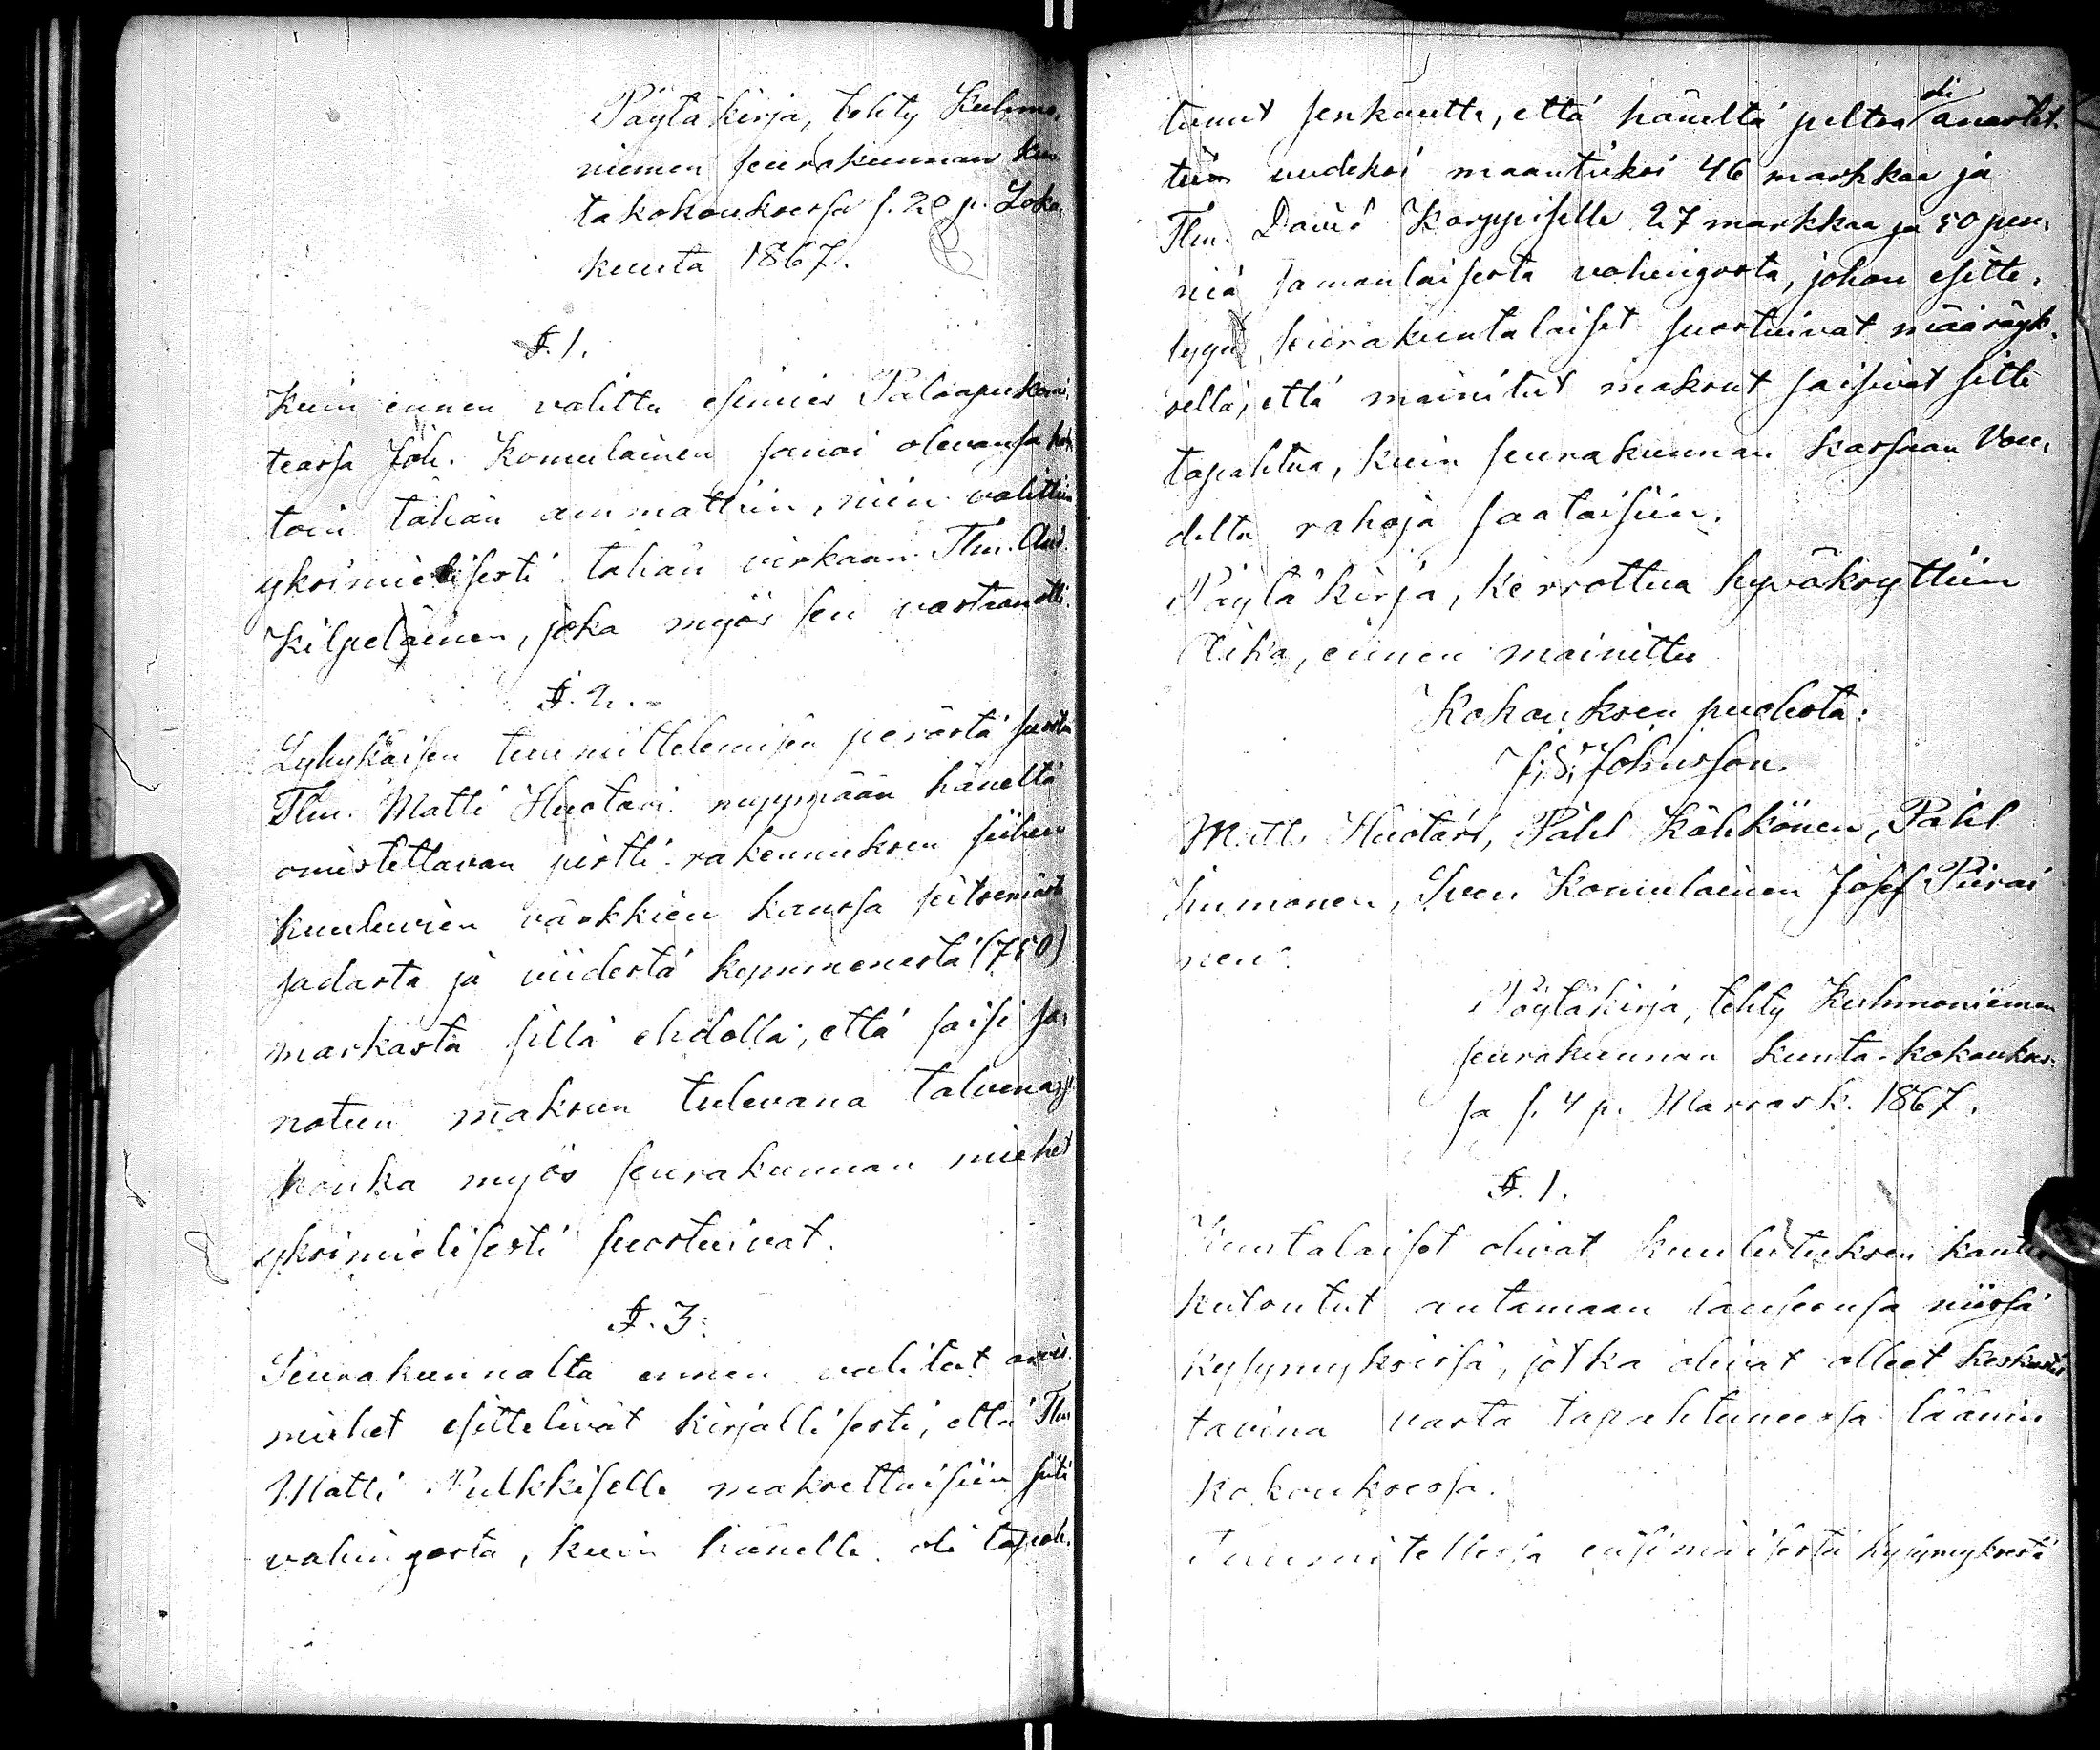 Pöytäkirja, tehty Kuhmo,
niemen seurakunnan kun,
takokouksessa s. 20 p. Loka,
kuuta 1867.
§. 1.
Kuin ennen valittu esimies Paloapukomi,
teassa Joh. Komulainen sanoi olevansa
toin tähän ammattiin, niin valittiin
yksimielisesti tähän virkaan Tlm. And.
Kilpeläinen, joka myös sen vastaanotti.
§. 2.
Lyhykäisen tuumittelemisen perästä suostu
Tlm. Matti Huotari myymään häneltä
omistettavan pirtti-rakennuksen siihen
kuuluvien värkkien kanssa seitsemästä
sadasta ja viidestä kymmenestä (750)
markasta sillä ehdolla, että saisi sa,
notun maksun tulevana talvena,
honka myös seurakunnan miehet
yksimielisesti suostuivat.
§. 3.
Seurakunnalta ennen valitut arvio
miehet esittelivät kirjallisesti, että Tlm
Matti Pulkkiselle maksettaisiin siitä
vahingosta, kuin hänelle oli tapah,
tunut senkautta, että häneltä peltoa oli anastet,
tu uudeksi maantieksi 46 markkaa ja
Tlm. David Karppiselle 27 markkaa ja 50 pen,
niä samanlaisesta vahingosta, johon esitte,
lyyn seurakuntalaiset suostuivat määräyk,
sellä, että mainitut maksut saisivat sitte
tapahtua, kuin seurakunnan kassaan Vou,
delta rahoja saataisiin.
Pöytäkirja, kerrottua hyväksyttiin
Aika, ennen mainittu
Kokouksen puolesta:
J. S. Johnsson.
Matts Huotari, Påhl Kähkönen, Påhl
Sven Komulainen Josef Piirai
nen.
Pöytäkirja, tehty Kuhmoniemen
seurakunnan kunta-kokoukses,
sa s. 4 p. Marrask. 1867.
§. 1.
Kuntalaiset olivat kuulutuksen kautta
kutsutut antamaan lauseensa niissä
kysymyksissä, jotka olivat olleet keskustel
tavina vasta tapahtuneessa läänin
kokouksessa.
Tuumitellessa ensimäisestä kysymyksestä